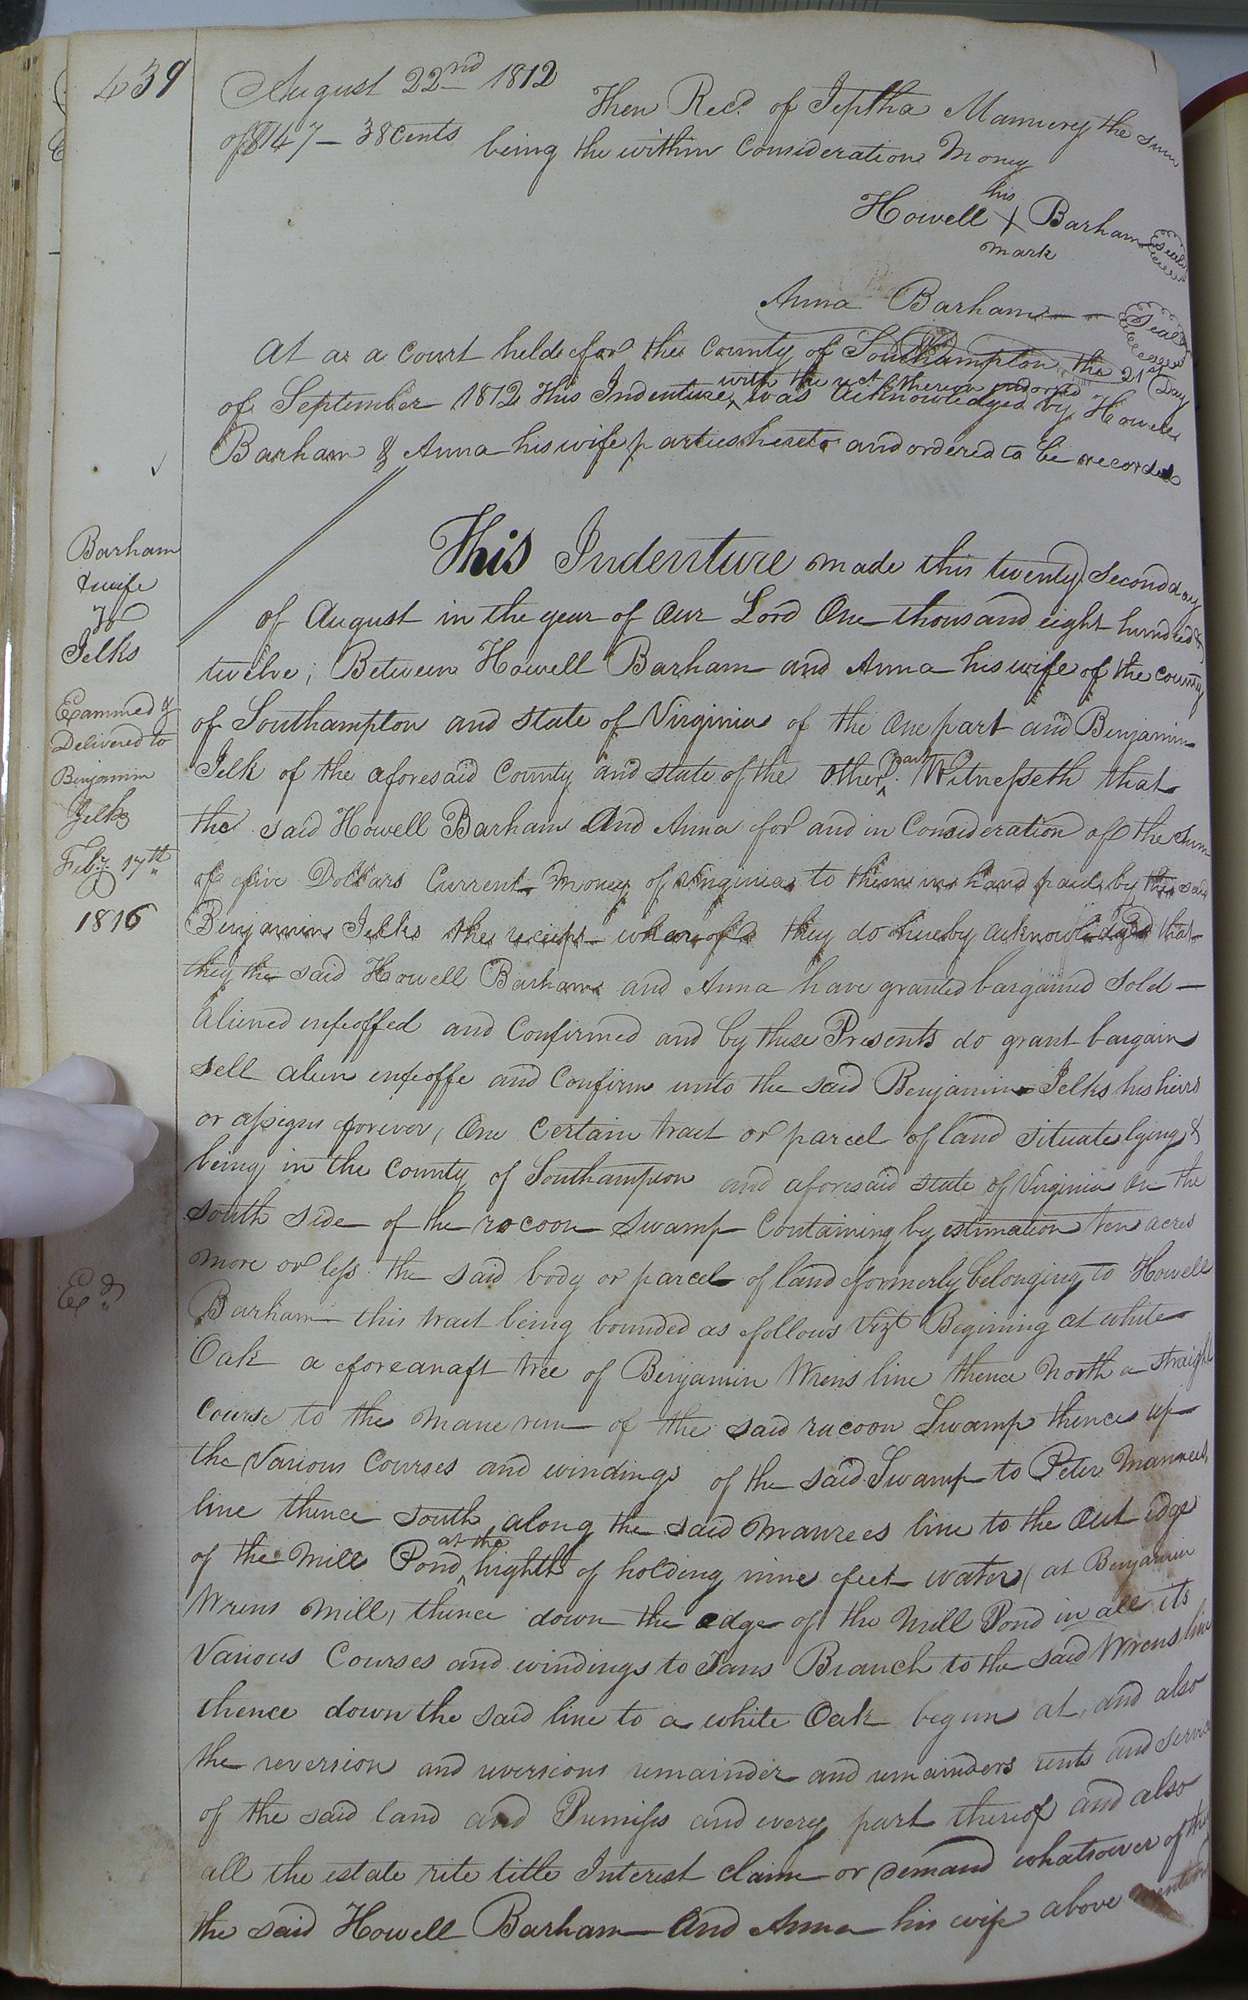 439
August 22nd 1812
Then Recd. of Jeptha Mannery the sum
of $147 – 38 Cents being the within Consideration Money
his
Howell X Barham Seal
mark
Anna Barham – – Seal
At as a Court held for the County of Southampton the 21st Day
of September 1812 This Indenture with the rct. thereon endorsed was Acknowledged by Howell
Barham & Anna his wife parties hereto and ordered to be recorded
Barham
& wife
To
Jelks
Examined &
Delivered to
Benjamin
Jelks
Feby. 17th
1816
Exd.
This Indenture made this twenty Second day
of August in the year of Our Lord One thousand eight hundred &
twelve; Between Howell Barham and Anna his wife of the county
of Southampton and State of Virginia of the One part and Benjamin
Jelk of the aforesaid County and State of the other part Witnesseth that
the said Howell Barham And Anna for and in Consideration of the Sum
of five Dollars Current Money of Virginia to them in hand paid by the said
Benjamin Jelks the reciept whareof they do hereby acknowledged that
they the said Howell Barham and Anna have granted bargained Sold –
Aliened enfeoffed and Confirmed and by these Presents do grant bargain
Sell alien enfeoffe and Confirm unto the said Benjamin Jelks his heirs
or assigns forever, One Certain tract or parcel of land Situate lying &
being in the County of Southampton and aforesaid state of Virginia On the
South Side of the racoon Swamp Containing by estimation ten acres
more or less the said body or parcel of land formerly belonging to Howell
Barham this tract being bounded as follows Vizt Begining at white
Oak a foreanaft tree of Benjamin Wrens line thence North a straight
Course to the Mane run of the said racoon Swamp thence up
the Various Courses and windings of the said Swamp to Peter
line thence South along the said line to the Out edge
of the Mill Pond at the hights of holding nine feet water (at Benjamin
Wrens Mill) thence down the edge of the Mill Pond in all its
Various Courses and windings to Branch to the said Wrens line
thence down the said line to a white Oak begun at, and also
the reversion and reversions remainder and remainders rents and
of the said land and Premises and every part thereof and also
all the estate rite title Interest claim or demand whatsoever of them
the said Howell Barham And Anna his wife above